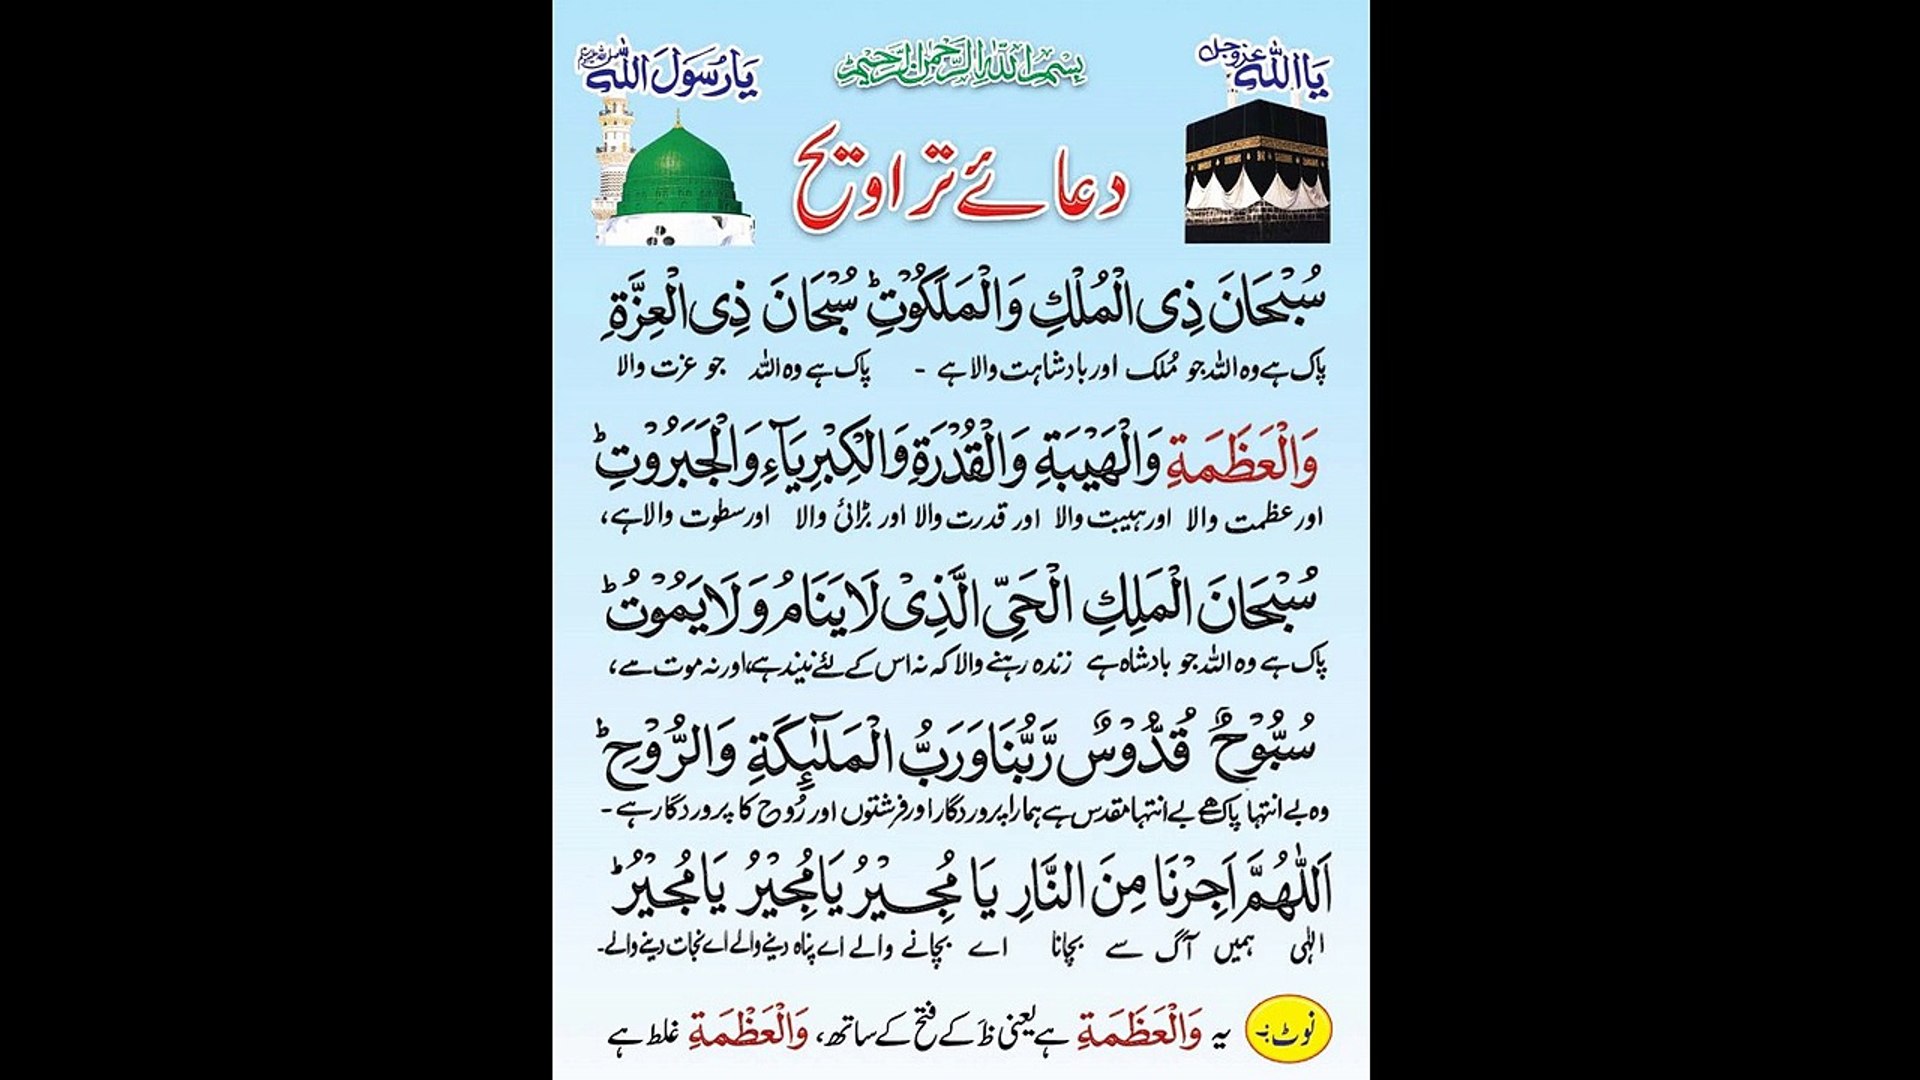 یَا اللہ عزوجل
بِسْمِ اللهِ الرَّحْمٰنِ الرَّحِيْمِ
یَا رَسُوْلَ اللہ ﷺ
دعائے تراویح
سُبْحَانَ ذِی الْمُلْكِ وَالْمَلَكُوْتِ ؕ سُبْحَانَ ذِی الْعِزَّةِ
پاک ہے وہ اللہ جو مُلک اور بادشاہت والا ہے - پاک ہے وہ اللہ جو عزت والا
وَالْعَظَمَةِ وَالْهَيْبَةِ وَالْقُدْرَةِ وَالْكِبْرِيَآءِ وَالْجَبَرُوْتِ ؕ
اور عظمت والا اور ہیبت والا اور قدرت والا اور بڑائ والا اور سطوت والا ہے،
سُبْحَانَ الْمَلِكِ الْحَىِّ الَّذِىْ لَا يَنَامُ وَلَا يَمُوْتُ ؕ
پاک ہے وہ اللہ جو بادشاہ ہے زندہ رہنے والا کہ نہ اس کے لئے نیند ہے، اور نہ موت ہے،
سُبُّوْحٌ قُدُّوْسٌ رَّبُّنَا وَرَبُّ الْمَلٰٓئِكَةِ وَالرُّوْحِ ؕ
وہ بے انتہا پاک ہے بے انتہا مقدس ہے ہمارا پروردگار اور فرشتوں اور رُوح کا پروردگار ہے -
اَللّٰهُمَّ اَجِرْنَا مِنَ النَّارِ يَا مُجِيْرُ يَا مُجِيْرُ يَا مُجِيْرُ ؕ
الٰہی ہمیں آگ سے بچانا اے بچانے والے اے پناہ دینے والے اے نجات دینے والے-
نوٹ:- یہ وَالْعَظَمَةِ ہے یعنی ظَ کے فتح کے ساتھ، وَالْعَظْمَةِ غلط ہے